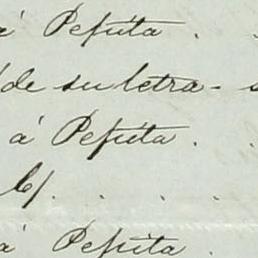 á Pepita .
de su letra -
á Pepita . .
6/. . . .
á Pepita .